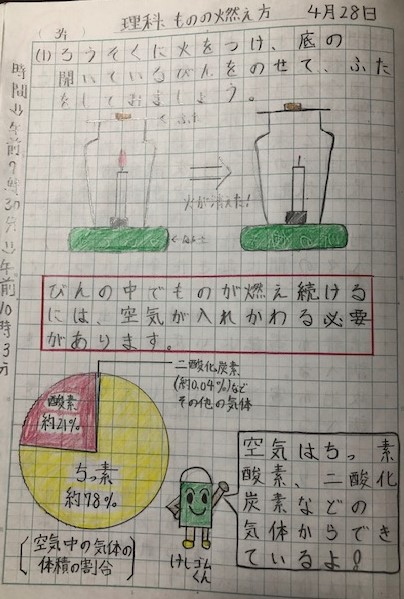 理科 ものの燃え方 4月28日
(1) ろうそくに火をつけ、底の
開いているびんをのせて、ふた
をしておきましょう。
ふた
火が消えた!
ねん土
びんの中でものが燃え続ける
には、空気が入れかわる必要
があります。
二酸化炭素
(約0.04%)など
その他の気体
酸素
約21%
ちっ素
約78%
空気中の気体の
体積の割合
けしゴム
くん
空気はちっ素
酸素、二酸化
炭素などの
気体からでき
ているよ!